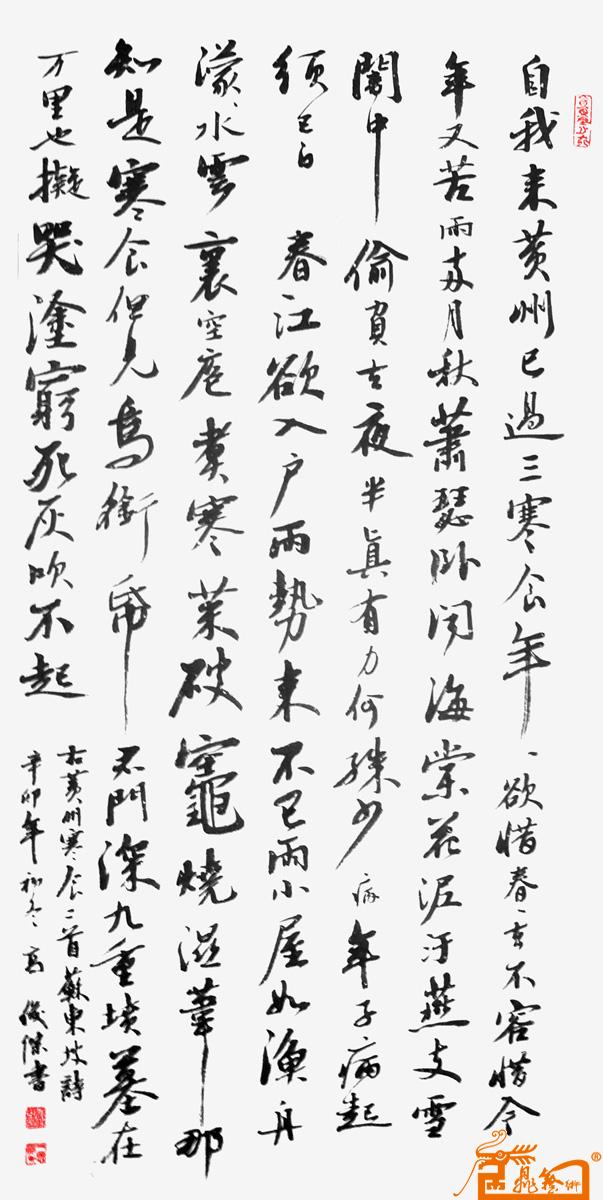 自我来黄州已過三寒食年、欲惜春、去不容惜今
年又苦雨两月秋蕭瑟卧闻海棠花泥汙燕支雪
闇中偷負去夜半真有力何殊少病年子病起
须已白 春江欲入户雨勢来不已雨小屋如漁舟
濛、水雲裏空庖煮寒菜破竈燒濕葦那
知是寒食但見烏銜帋君門深九重墳墓在
万里也擬哭塗窮死灰吹不起
右黄州寒食二首蘇東坡詩
辛卯年初冬高俊傑書